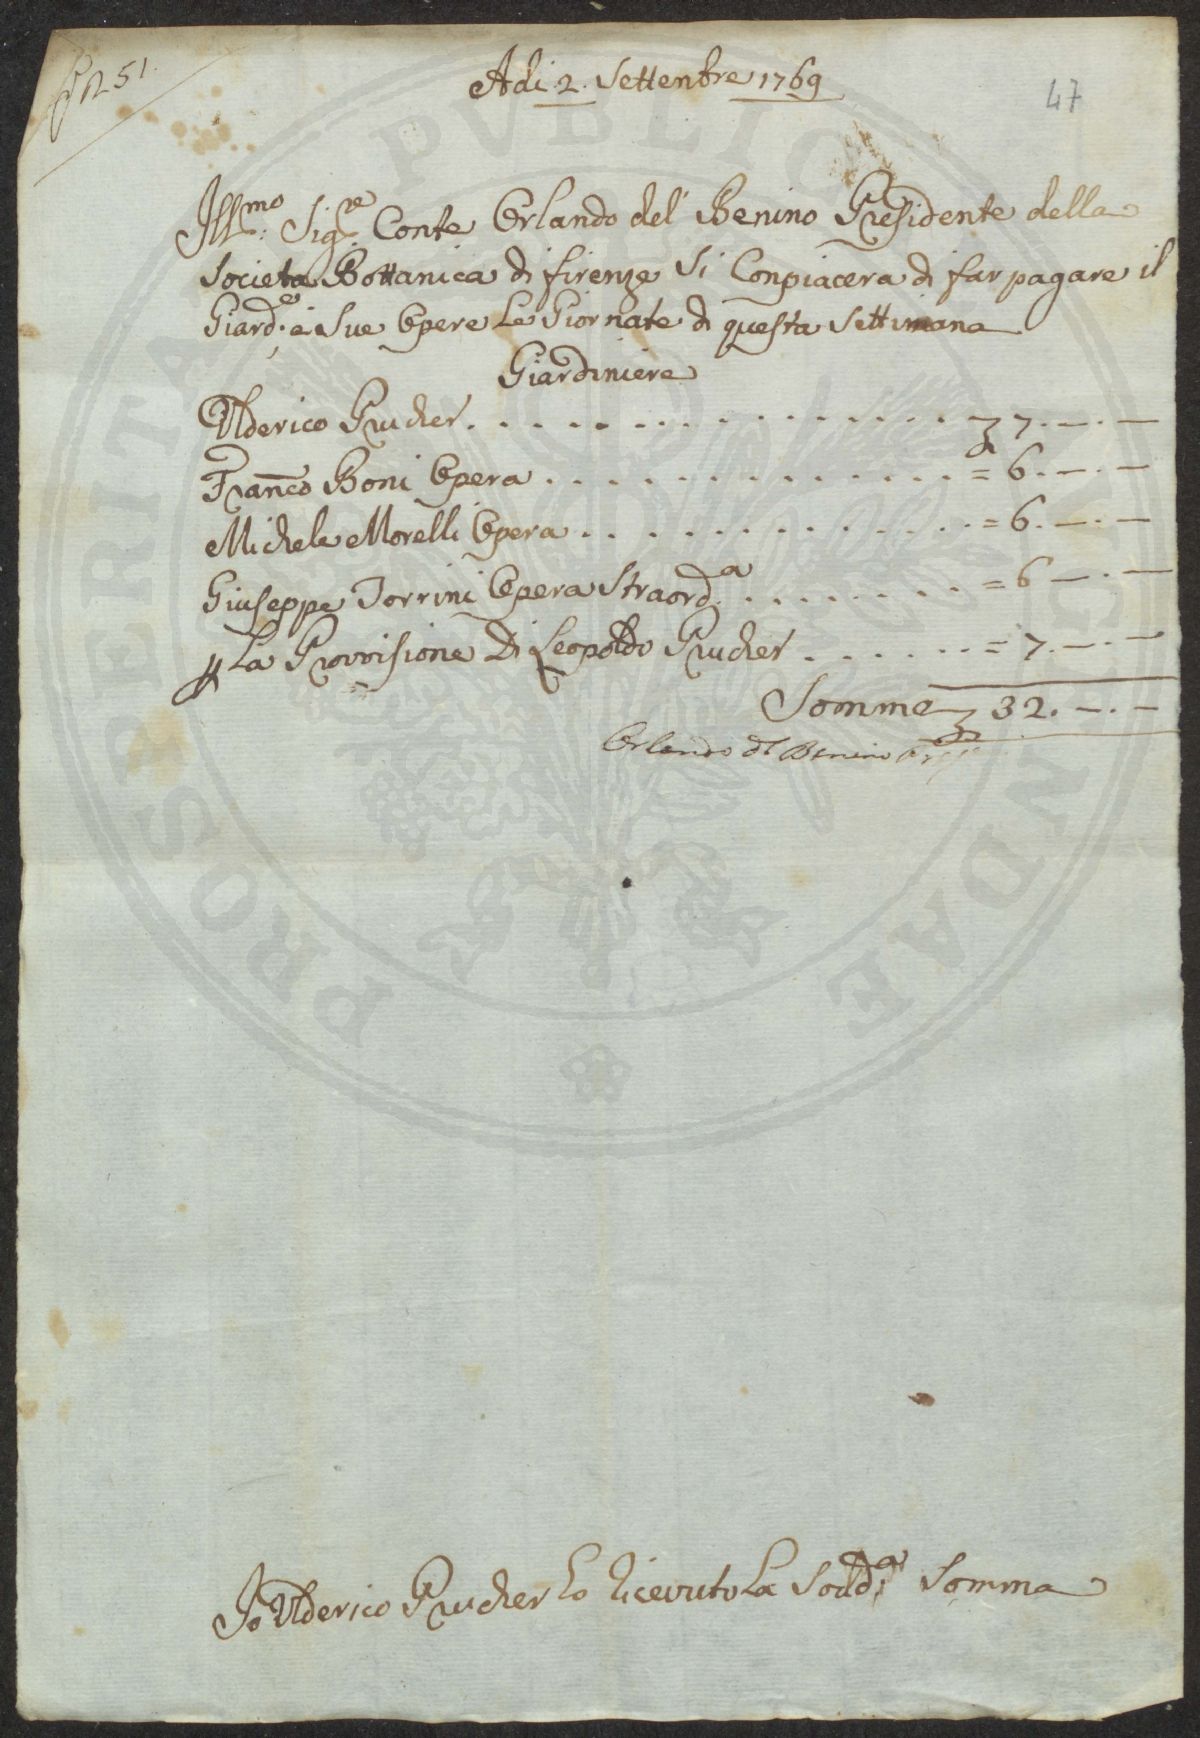 N 51.
Adi 2. Settenbre 1769
47
Ill:mo Sig:re Conte Orlando del Benino Presidente della
Societa Bottanica di firenze Si Conpiacera di far pagare il
Giard:e e Sue Opere Le Giornate di questa Settimana
Giardiniere
Ulderico Prucher 7.—.—
Franco Boni Opera = 6.—.—
Michele Morelli Opera = 6.—.—
Giuseppe Torrini Opera Straord:a = 6—.—
La Provisione Di Leopoldo Prucher = 7.—.—
Somma 32.—.—
Orlando del Benino
Io Ulderico Prucher ho ricevuto La Sudd:a Somma
PUBLICAE
PROSPERITATI
AUGENDAE